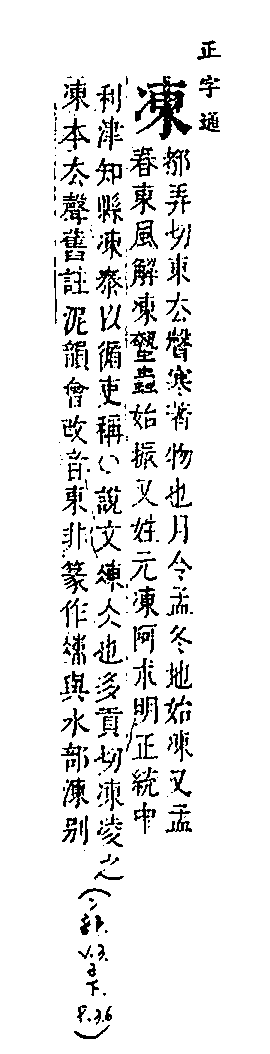 正字通
凍
都弄切東去聲寒凝物也月令孟冬地始凍又孟
春東風解凍蟄蟲始振又姓元凍阿求明正統中
利津知縣凍泰以循吏稱〻說文凍仌也多貢切凍凌之
凍本去聲舊註泥韻會改音東非篆作凍與水部凍別
(冫部.
V.3.
子下.
P.36)